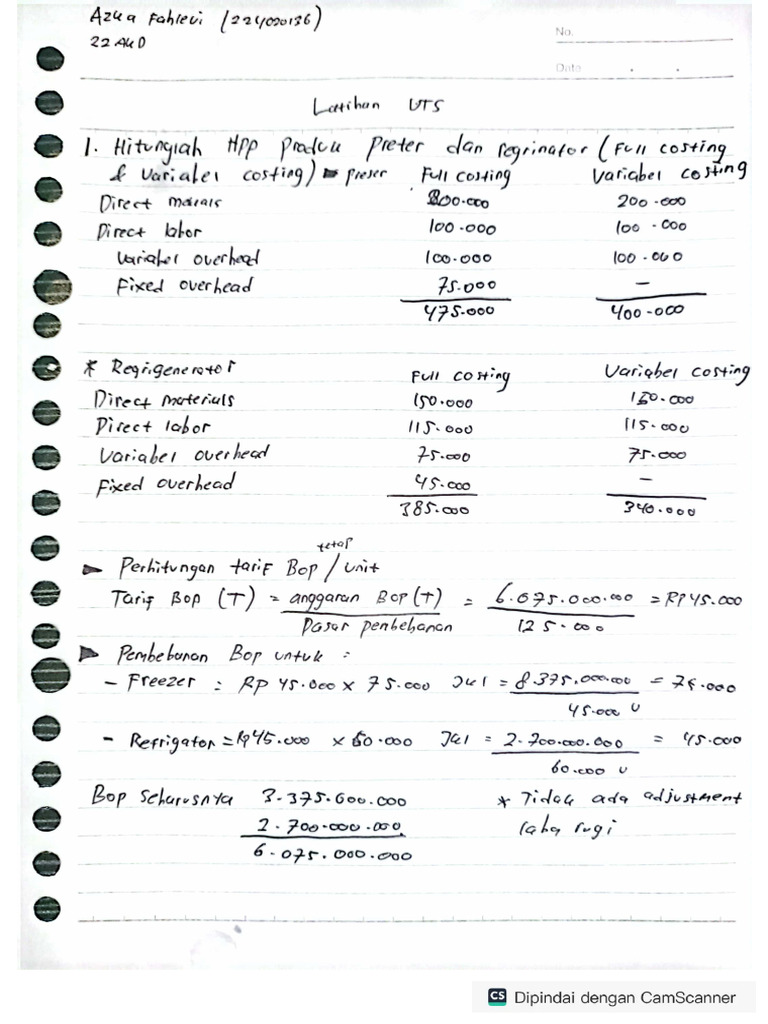 Azka Fahlevi (224020136)
22 AKD
No.
Date
Latihan UTS
1. Hitunglah HPP produk Preser dan Regrinator (Full costing
& Variabel costing) ► preser Full Costing Variabel costing
Direct matrals 200.000 200.000
Direct labor 100.000 100.000
Variabel overhead 100.000 100.000
Fixed overhead 75.000 -
475.000 400.000
* Regrigenerator Full costing Variabel costing
Direct materials 150.000 150.000
Direct labor 115.000 115.000
Variabel overhead 75.000 75.000
Fixed overhead 45.000 -
385.000 340.000
► Perhitungan tarif Bop tetap / unit
Tarif Bop (T) = anggaran Bop (T) = 6.075.000.000 = RP 45.000
Dasar penbebanan 125.000
► Pembebanan Bop untuk :
- Freezer : RP 45.000 x 75.000 Jkl = 8.375.000.000 = 75.000
45.000 U
- Refrigator = Rp45.000 x 60.000 Jkl = 2.700.000.000 = 45.000
60.000 U
Bop seharusnya 3.375.600.000 * Tidak ada adjustment
2.700.000.000 laba rugi
6.075.000.000
CS Dipindai dengan CamScanner